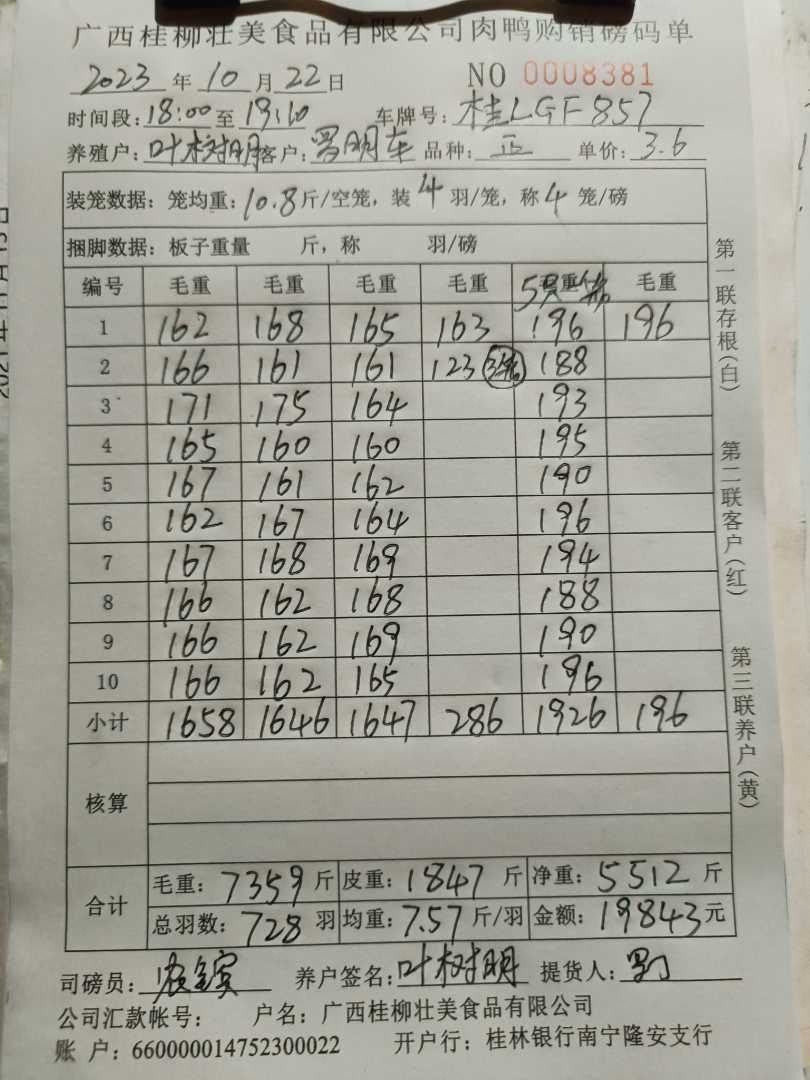 广西桂柳壮美食品有限公司肉鸭购销磅码单
2023 年 10 月 22 日 NO 0008381
时间段: 18:00 至 19:10 车牌号: 桂LGF857
养殖户: 叶树明 客户: 罗明车 品种: 正 单价: 3.6
装笼数据: 笼均重: 10.8 斤/空笼, 装 4 羽/笼, 称 4 笼/磅
捆脚数据: 板子重量 斤, 称 羽/磅
编号 毛重 毛重 毛重 毛重 5只 毛重 毛重
1 162 168 165 163 196 196
2 166 161 161 123 3笼 188
3 171 175 164 193
4 165 160 160 195
5 167 161 162 190
6 162 167 164 196
7 167 168 169 194
8 166 162 168 188
9 166 162 169 190
10 166 162 165 196
小计 1658 1646 1647 286 1926 196
核算
合计
毛重: 7359 斤 皮重: 1847 斤 净重: 5512 斤
总羽数: 728 羽 均重: 7.57 斤/羽 金额: 19843 元
司磅员: 养户签名: 叶树明 提货人:
公司汇款帐号: 户名: 广西桂柳壮美食品有限公司
账 户: 660000014752300022 开户行: 桂林银行南宁隆安支行
第一联存根(白)
第二联客户(红)
第三联养户(黄)